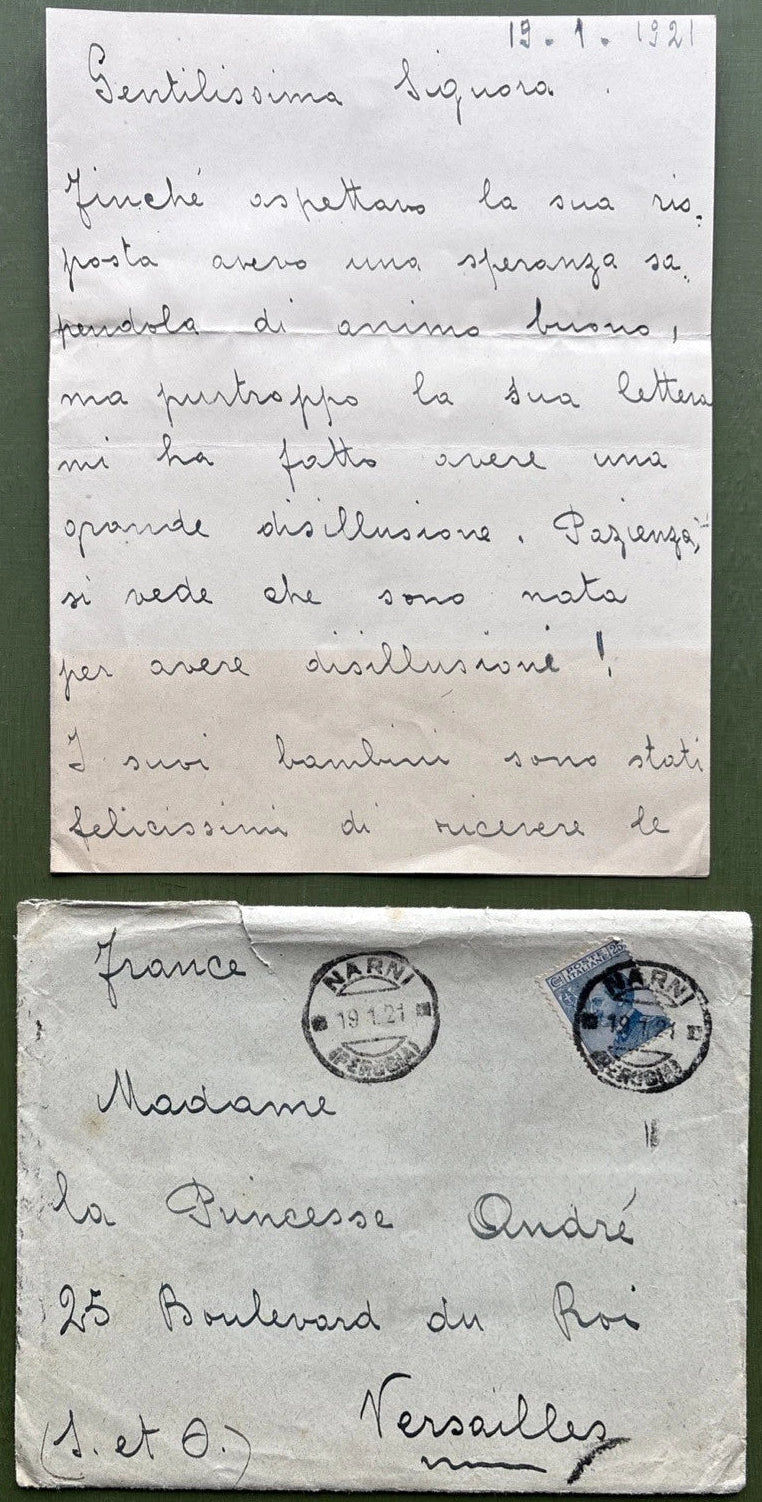 19.1.1921
Gentilissima Signora.
Finché aspettavo la sua ris-
posta avevo una speranza sa-
pendola di animo buono,
ma purtroppo la sua lettera
mi ha fatto avere una
grande disillusione. Pazienza,
si vede che sono nata
per avere disillusioni!
I suoi bambini sono stati
felicissimi di ricevere le
France
NARNI
19.1.21
(PERUGIA)
POSTE
ITALIANE
NARNI
19.1.21
(PERUGIA)
Madame
la Princesse André
25 Boulevard du Roi
Versailles
(S. et O.)